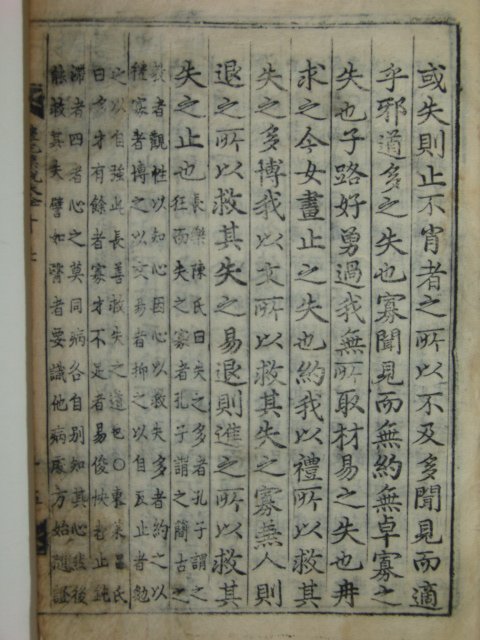 或失則止不肖者之所以不及多聞見而適
乎邪道多之失也寡聞見而無約無卓寡之
失也子路好勇過我無所取材易之失也冉
求之今女畫止之失也約我以禮所以救其
失之多博我以文所以救其失之寡兼人則
退之所以救其失之易退則進之所以救其
失之止也
長樂陳氏曰失之多者孔子謂之
狂而失之寡者孔子謂之簡古之
教者觀性以知心因心以救失多者約之以
禮寡者博之以文易者抑之以自反止者勉
之以自強此長善救失之道也○東萊呂氏
曰多才有餘者寡才不足者易俊快者止鈍
滯者四者心之莫同病各自別知其心然後
能救其失譬如醫者要識他病處方始隨證